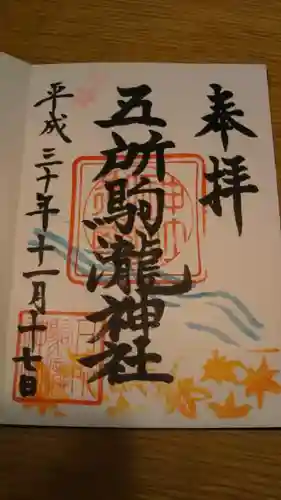 奉拝
五所駒瀧神社
平成三十年十一月十七日